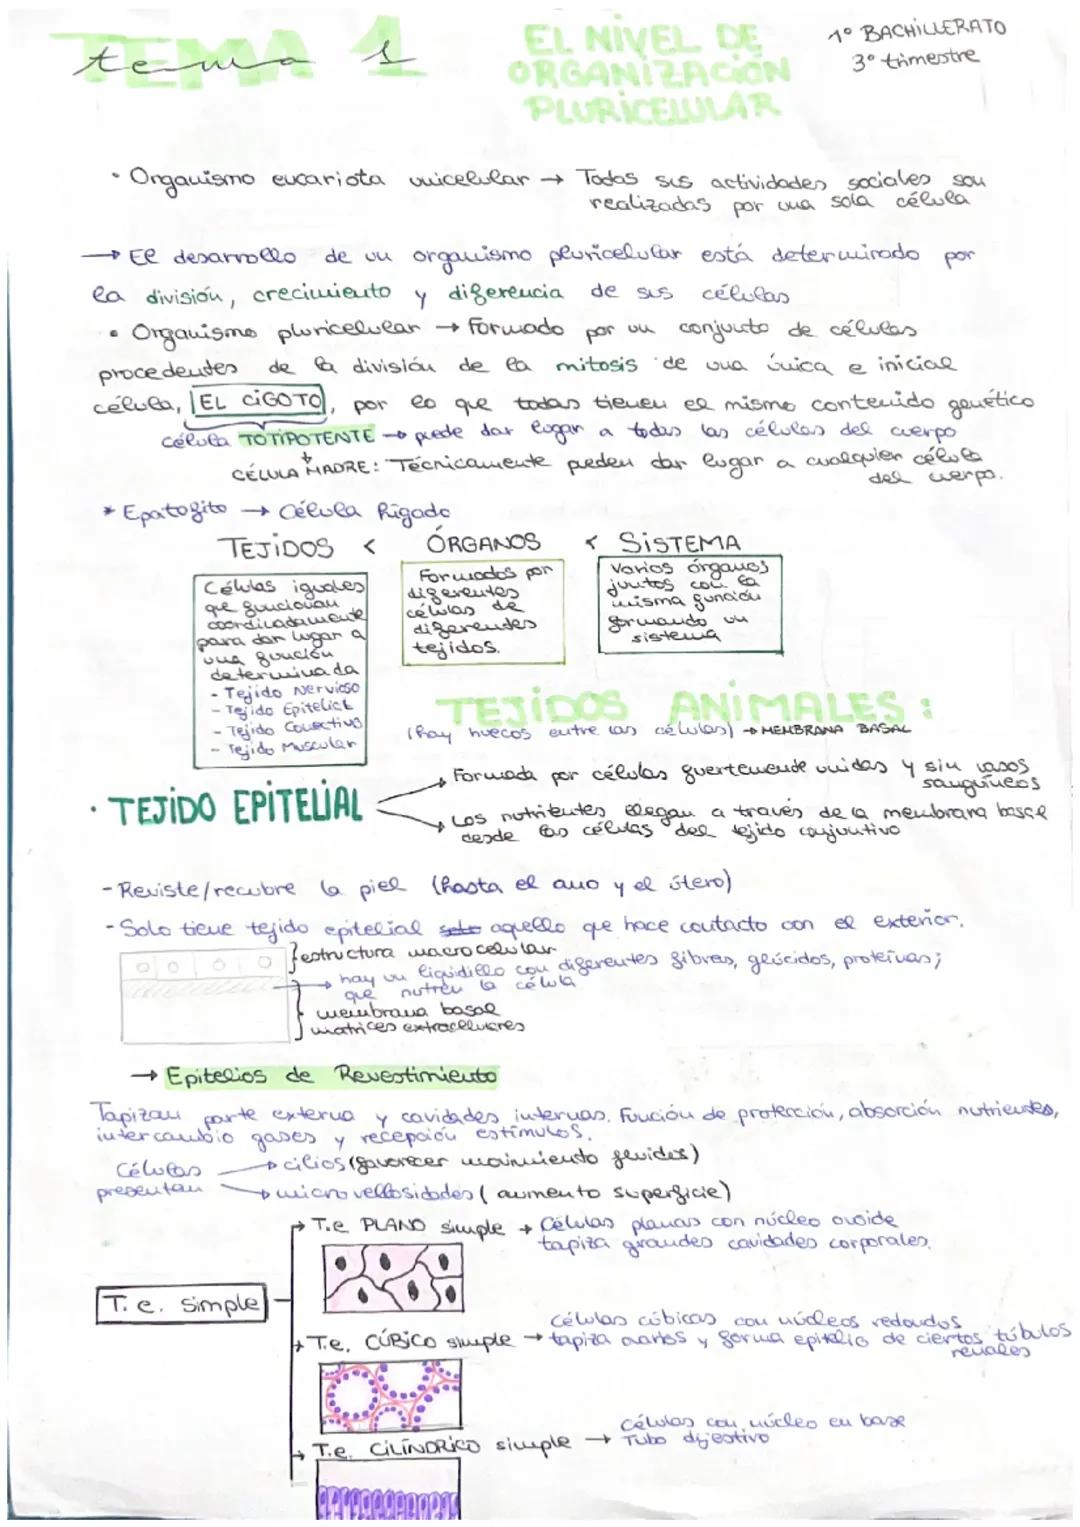 TEMA 1
tema 1
EL NIVEL DE
ORGANIZACIÓN
PLURICELULAR
1º BACHILLERATO
3º trimestre
· Organismo eucariota unicelular → Todas sus actividades sociales son
realizadas por una sola célula
→ El desarrollo de un organismo pluricelular está determinado por
la división, crecimiento y diferencia de sus células
· Organismo pluricelular → Formado por un conjunto de células
procedentes de la división de la mitosis de una única e inicial
célula, EL CIGOTO, por lo que todas tienen el mismo contenido genético
célula TOTIPOTENTE → puede dar lugar a todas las células del cuerpo
CÉLULA MADRE: Técnicamente pueden dar lugar a cualquier célula
del cuerpo.
* Epatofito → Célula hígado
TEJIDOS < ÓRGANOS < SISTEMA
Células iguales
que funcionan
coordinadamente
para dar lugar a
una función
determinada
- Tejido Nervioso
- Tejido Epitelial
- Tejido Conectivo
- Tejido Muscular
Formados por
diferentes
células de
diferentes
tejidos.
Varios órganos
juntos con la
misma función
formando un
sistema
TEJIDOS ANIMALES:
(hay huecos entre las células) → MEMBRANA BASAL
· TEJIDO EPITELIAL
Formada por células fuertemente unidas y sin vasos
sanguíneos
Los nutrientes llegan a través de la membrana basal
desde las células del tejido conjuntivo
- Reviste/recubre la piel (hasta el ano y el útero)
- Solo tiene tejido epitelial solo aquello que hace contacto con el exterior.
estructura macrocelular
hay un liquidillo con diferentes fibras, glúcidos, proteínas;
que nutren la célula
membrana basal
matrices extracelulares
→ Epitelios de Revestimiento
Tapizan parte externa y cavidades internas. Función de protección, absorción nutrientes,
intercambio gases y recepción estímulos.
Células
presentan
→ cilios (favorecer movimiento fluidos)
→ microvellosidades (aumento superficie)
T.e. simple
→ T.e PLANO simple → Células planas con núcleo ovoide
tapiza grandes cavidades corporales.
células cúbicas con núcleos redondos
→ T.e. CÚBICO simple → tapiza ovarios y forma epitelio de ciertos túbulos
renales
Células con núcleo en base
→ T.e. CILÍNDRICO simple → Tubo digestivo